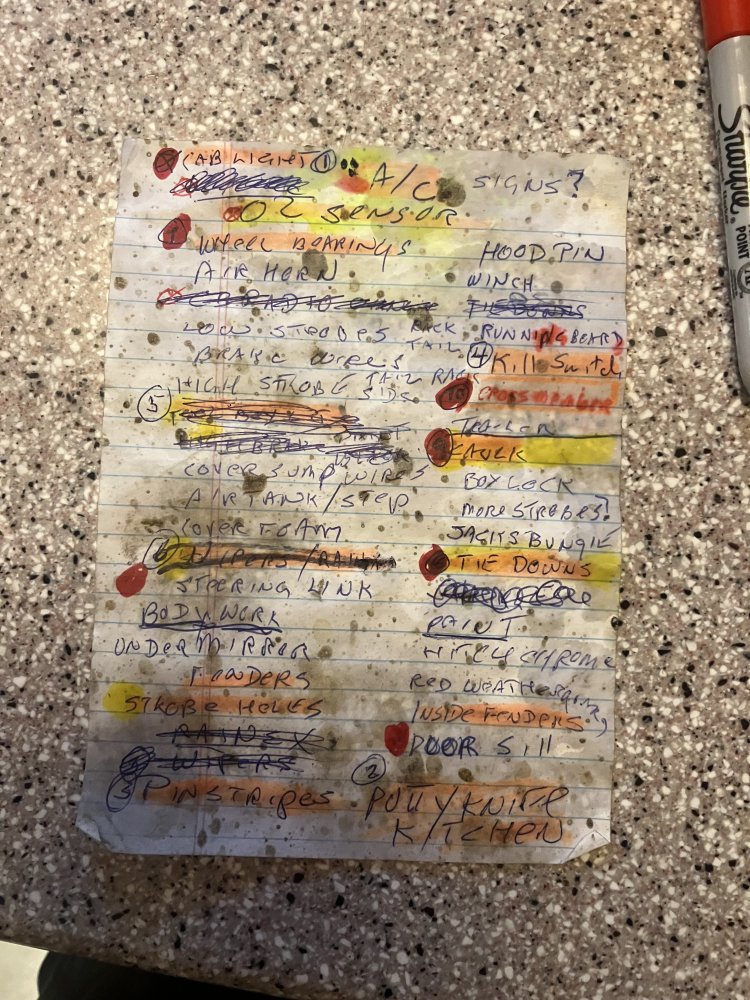 CAB LIGHT 1 A/C SIGNS?
O2 SENSOR
WHEEL BEARINGS
AIR HORN
LOW STROBES RACK TAIL
BRAKE WIRES
HIGH STROBE SIDE TAIL RACK
5
COVER SUMP WIRES
AIR TANK/STEP
COVER FOAM
6 WIPERS/RAINX
STEERING LINK
BODY WORK
UNDER MIRROR
FENDERS
STROBE HOLES
RAINEX
WIPERS
3 PINSTRIPES
HOOD PIN
WINCH
TIE DOWNS
RUNNING BOARD
4 Kill Switch
CROSSMEMBER
TRAILER
CAULK
BOX LOCK
MORE STROBES?
JACITS BUNGIE
TIE DOWNS
PAINT
HITCH CHROME
RED WEATHERING
INSIDE FENDERS,
DOOR SILL
2 PUTTY KNIFE
KITCHEN
Sharpie
POINT